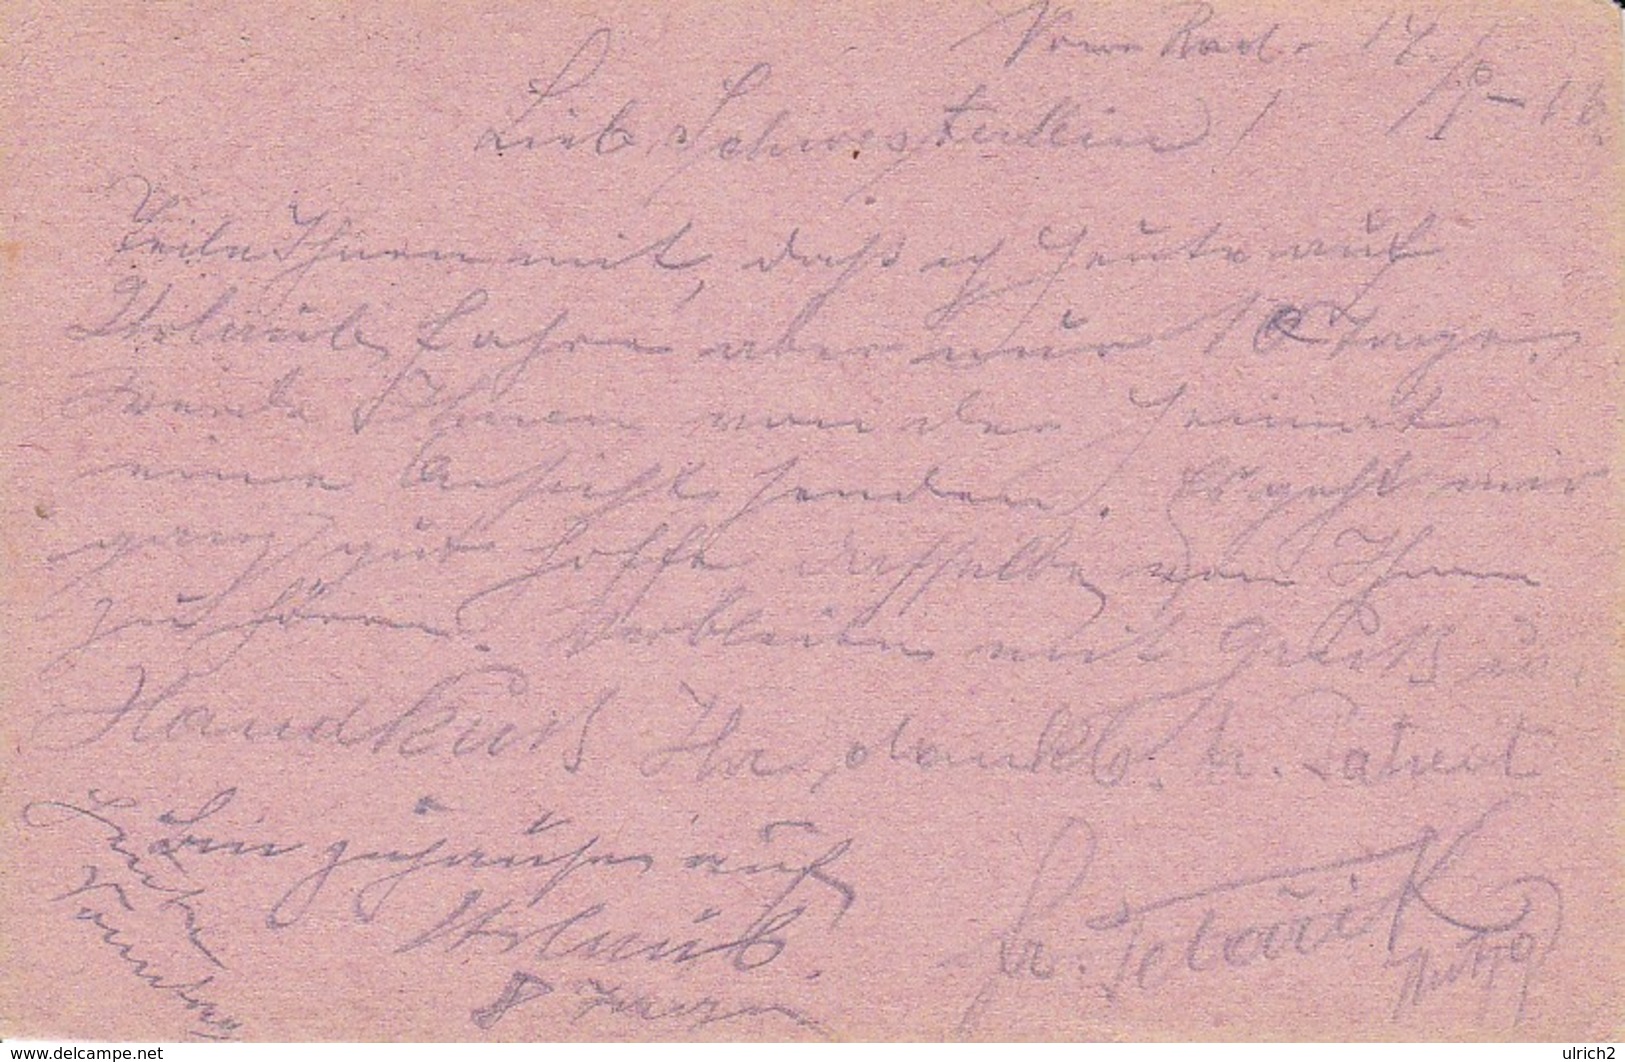 14/
Lieb Schwesterlein!
Teile Ihnen mit, daß ich heute auf
Urlaub fahre aber nur 10 Tage.
Werde Ihnen von der Heimat
eine Ansicht senden. Es geht mir
ganz gut hoffe dasselbe von Ihnen
zu hören. Verbleibe mit Gruß u.
Handkuß Ihr dankb. k. Patient
Bin zuhause auf
Urlaub.
8 Tagen
Heute
www.delcampe.net
ulrich2